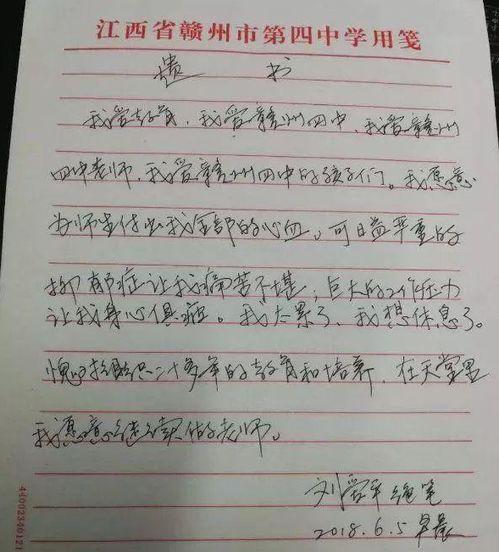 江西省赣州市第四中学用笺
遗 书
我爱教育，我爱赣州四中，我爱赣州
四中老师，我爱赣州四中的孩子们。我愿意
为师生付出我全部的心血。可日益严重的
抑郁症让我痛苦不堪；巨大的工作压力
让我身心俱疲。我太累了，我想休息了。
愧对组织二十多年的教育和培养，在天堂里
我愿意继续做老师。
刘爱平绝笔
2018.6.5 早晨
44002340121